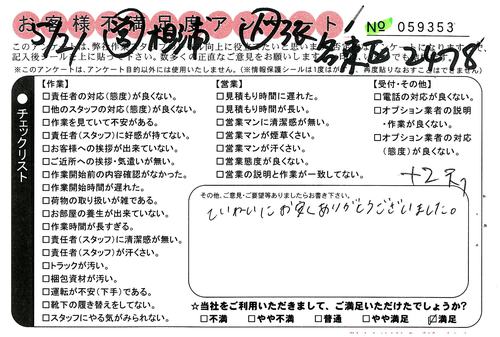 お客様不満足度アンケート
No 059353
5/21
このアンケートは、弊社作業スタッフ
※このアンケートは、アンケート目的以外には使用いたしません。(※情報保護シールは1度はが
再度貼りなおすことはできません)
チェックリスト
【作業】
□責任者の対応(態度)が良くない。
□他のスタッフの対応(態度)が良くない。
□作業を見ていて不安がある。
□責任者(スタッフ)に好感が持てない。
□お客様への挨拶が出来ていない。
□ご近所への挨拶・気遣いが無い。
□作業開始前の内容確認がなかった。
□作業開始時間が遅れた。
□荷物の取り扱いが雑である。
□お部屋の養生が出来ていない。
□作業時間が長すぎる。
□責任者(スタッフ)に清潔感が無い。
□責任者(スタッフ)が汗くさい。
□トラックが汚い。
□梱包資材が汚い。
□運転が不安(下手)である。
□靴下の履き替えをしてない。
□スタッフにやる気がみられない。
【営業】
□見積もり時間に遅れた。
□見積もり時間が長い。
□営業マンに清潔感が無い。
□営業マンが煙草くさい。
□営業マンが汗くさい。
□営業態度が良くない。
□営業の説明と作業が一致してない。
【受付・その他】
□電話の対応が良くない。
□オプション業者の説明
・作業が良くない。
□オプション業者の対応
(態度)が良くない。
その他、ご意見・ご要望等ありましたらお書き下さい。
ていねいにお安くありがとうございました。
☆当社をご利用いただきまして、ご満足いただけたでしょうか?
□不満 □やや不満 □普通 □やや満足 ☑満足